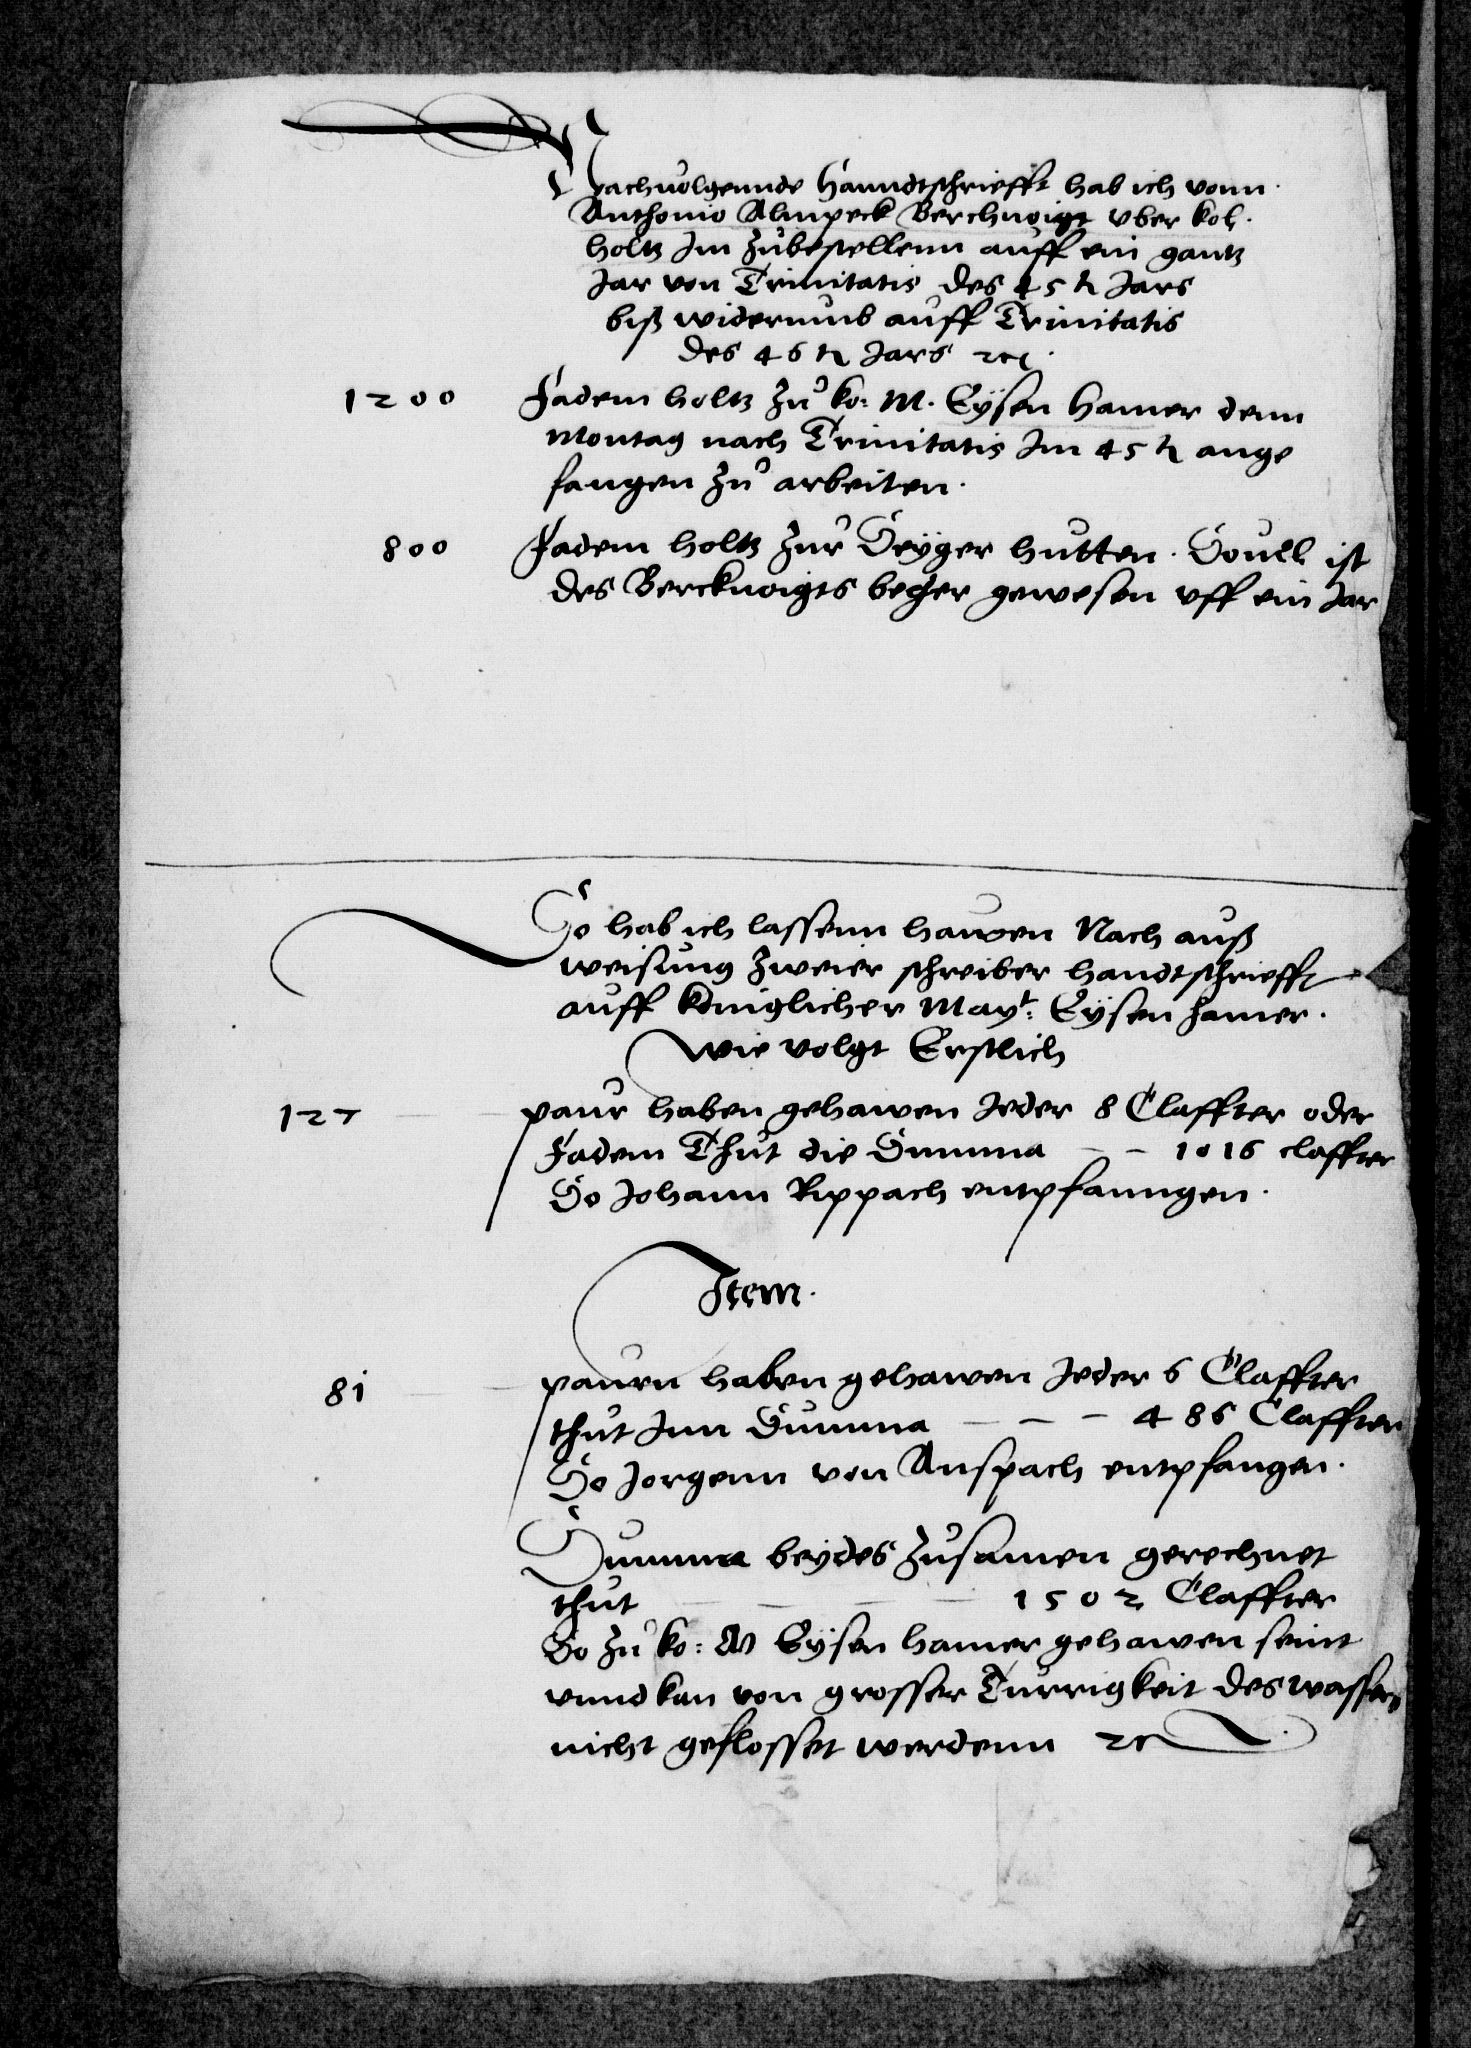 Nachuolgennde hanndtschriefft hab ich vonn
Anthonio Alnpeck Berchuoigt vber kol
holtz Im zubestellenn auff ein gantz
Jar von Trinitatis des 45 tn Jars
biß widerumb auff Trinitatis
des 46 tn Jars etc.
1200 Fadem holtz zu ko: M. Eÿsen hamer denn
Montag nach Trinitatis Im 45 tn ange
fangen zu arbeiten.
800 Fadem holtz zur Seÿger hutten. Souill ist
des Berckuoigts beger gewesen vff ein Jar
So hab ich lassenn hawen Nach auß
weisung zweier schreiber handtschriefft
auff koniglicher Mayt: Eÿsen hamer.
wie volgt Erstlich
127 paur haben gehawen Jeder 8 Claffter oder
Fadem Thut die Summa 1016 claffter
So Johann Rippach entpfanngen.
Item.
81 paurn haben gehawen Jeder 6 Claffter
thut Inn Summa 486 Claffter
So Jorgenn von Anspach entpfangen.
Summa beÿdes zusamen gerechnet
thut 1502 Claffter
So zu ko: M Eÿsen hamer gehawen seint
vnnd kan von grosser Turrigkeit des wassers
nicht geflosset werdenn etc